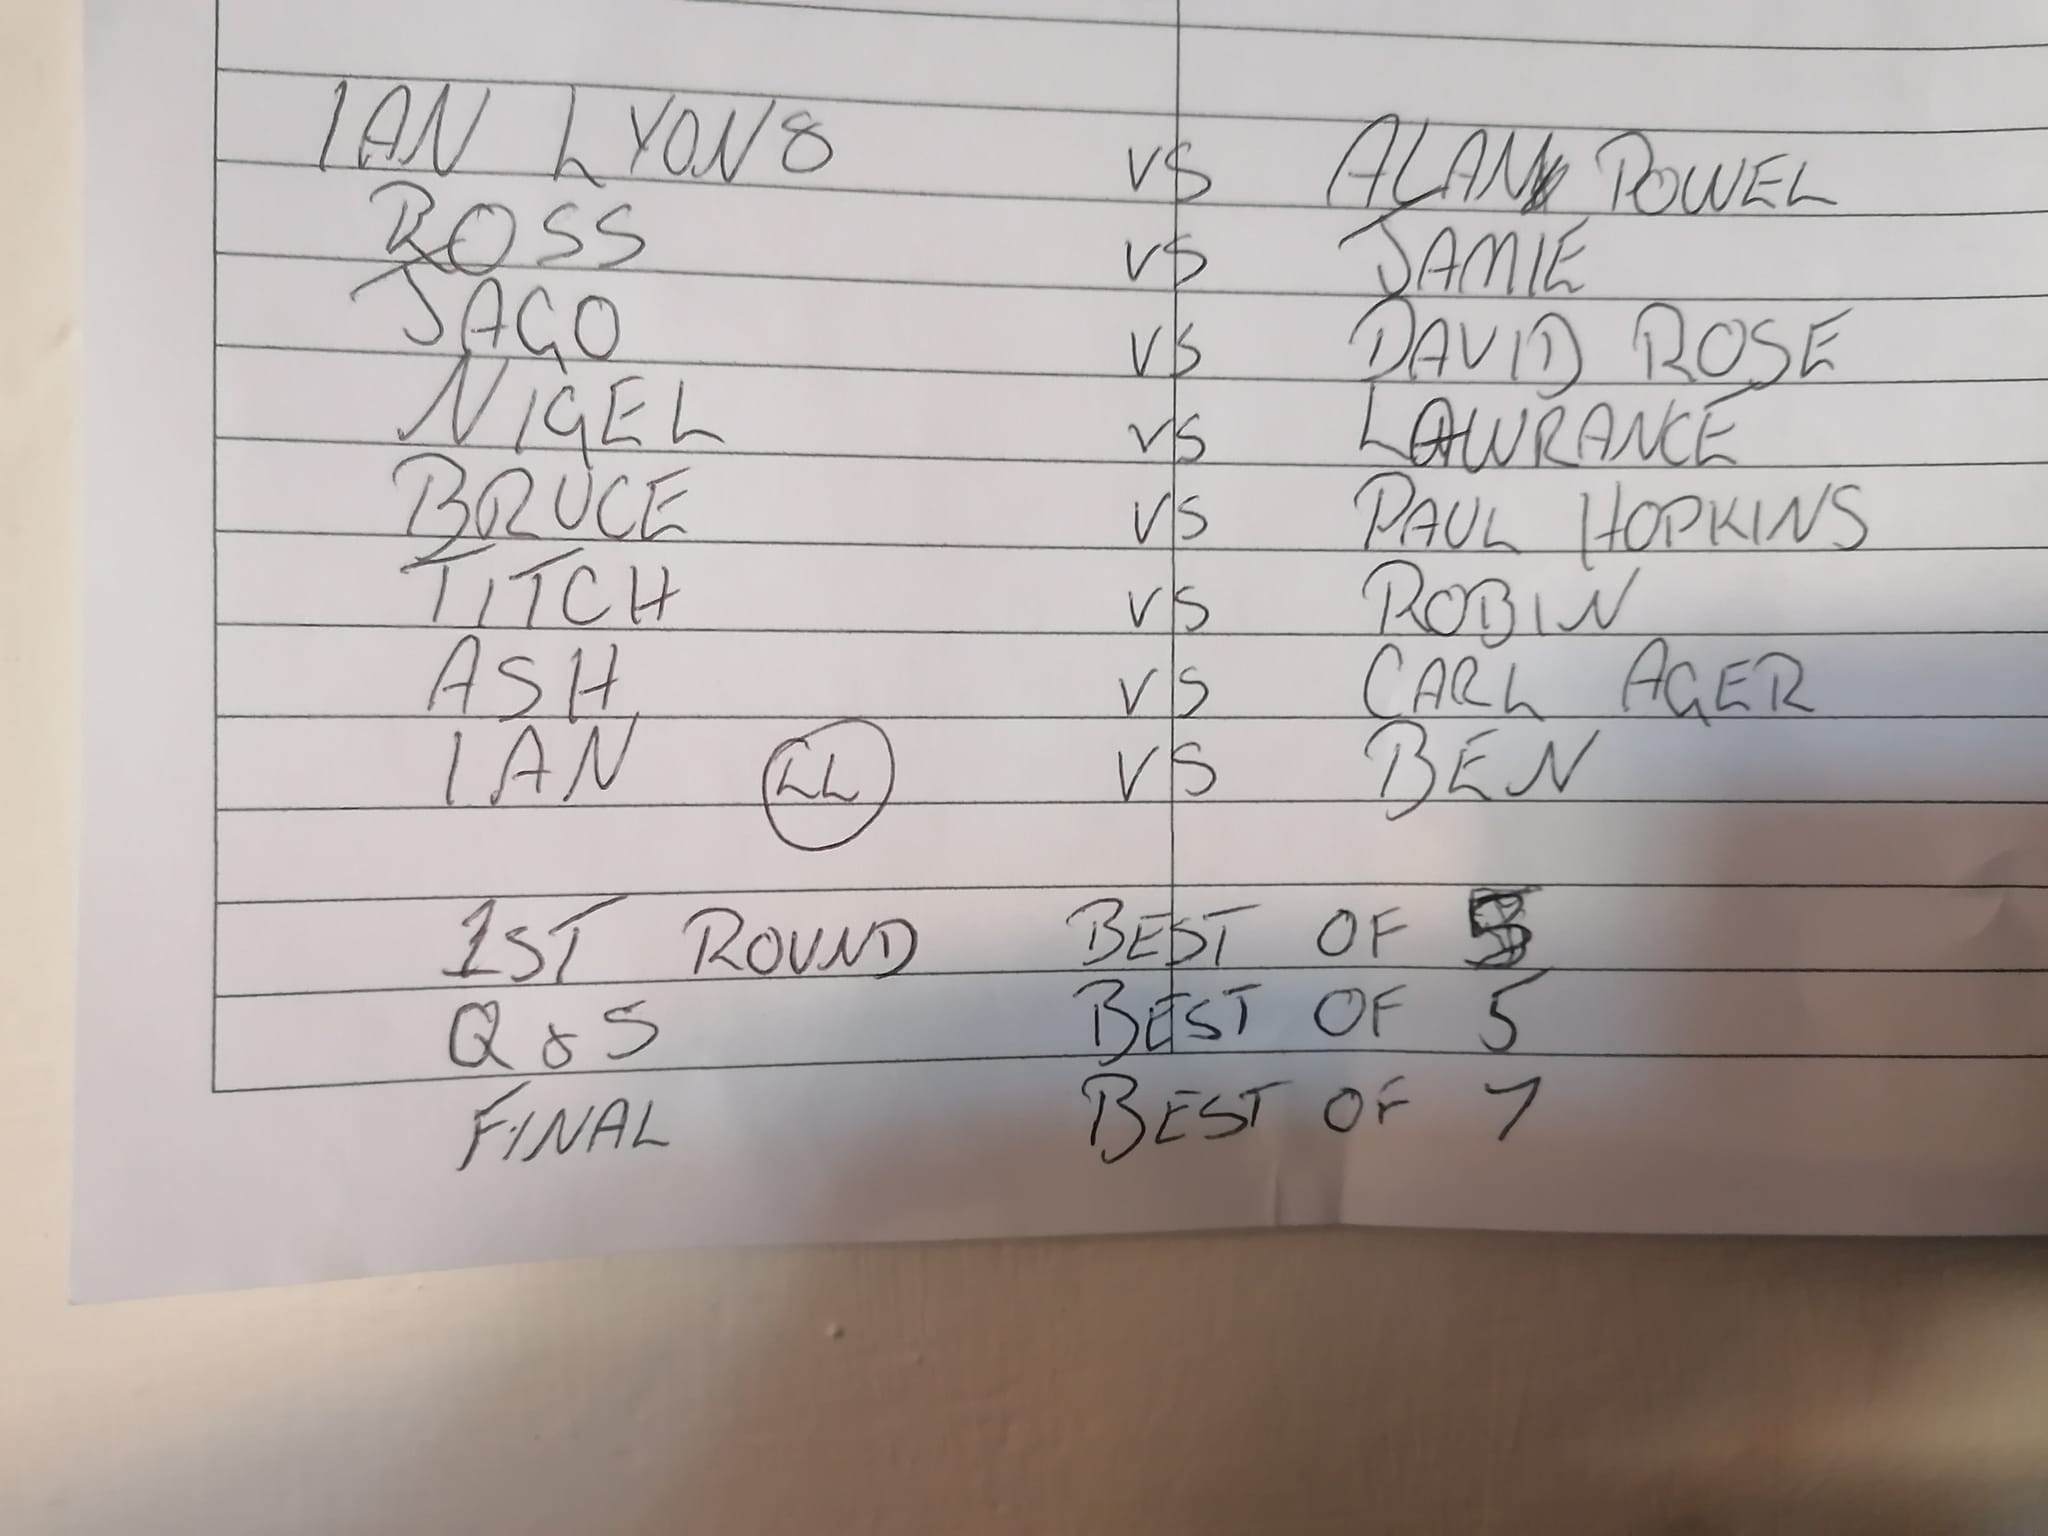 IAN LYONS VS ALAN POWEL
ROSS VS JAMIE
JAGO VS DAVID ROSE
NIGEL VS LAWRANCE
BRUCE VS PAUL HOPKINS
TITCH VS ROBIN
ASH VS CARL AGER
IAN LL VS BEN
1ST ROUND BEST OF
Q & S BEST OF 5
FINAL BEST OF 7